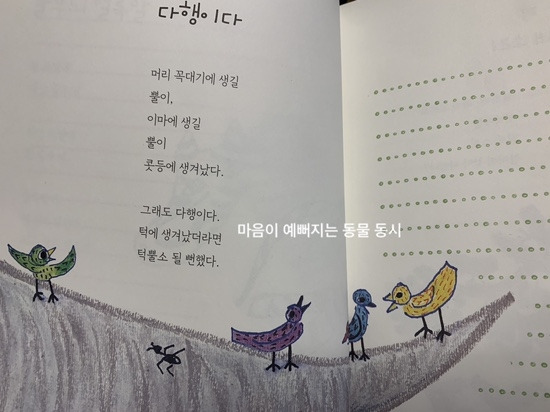 다행이다
머리 꼭대기에 생길
뿔이,
이마에 생길
뿔이
콧등에 생겨났다.
그래도 다행이다.
턱에 생겨났더라면
턱뿔소 될 뻔했다.
마음이 예뻐지는 동물 동시